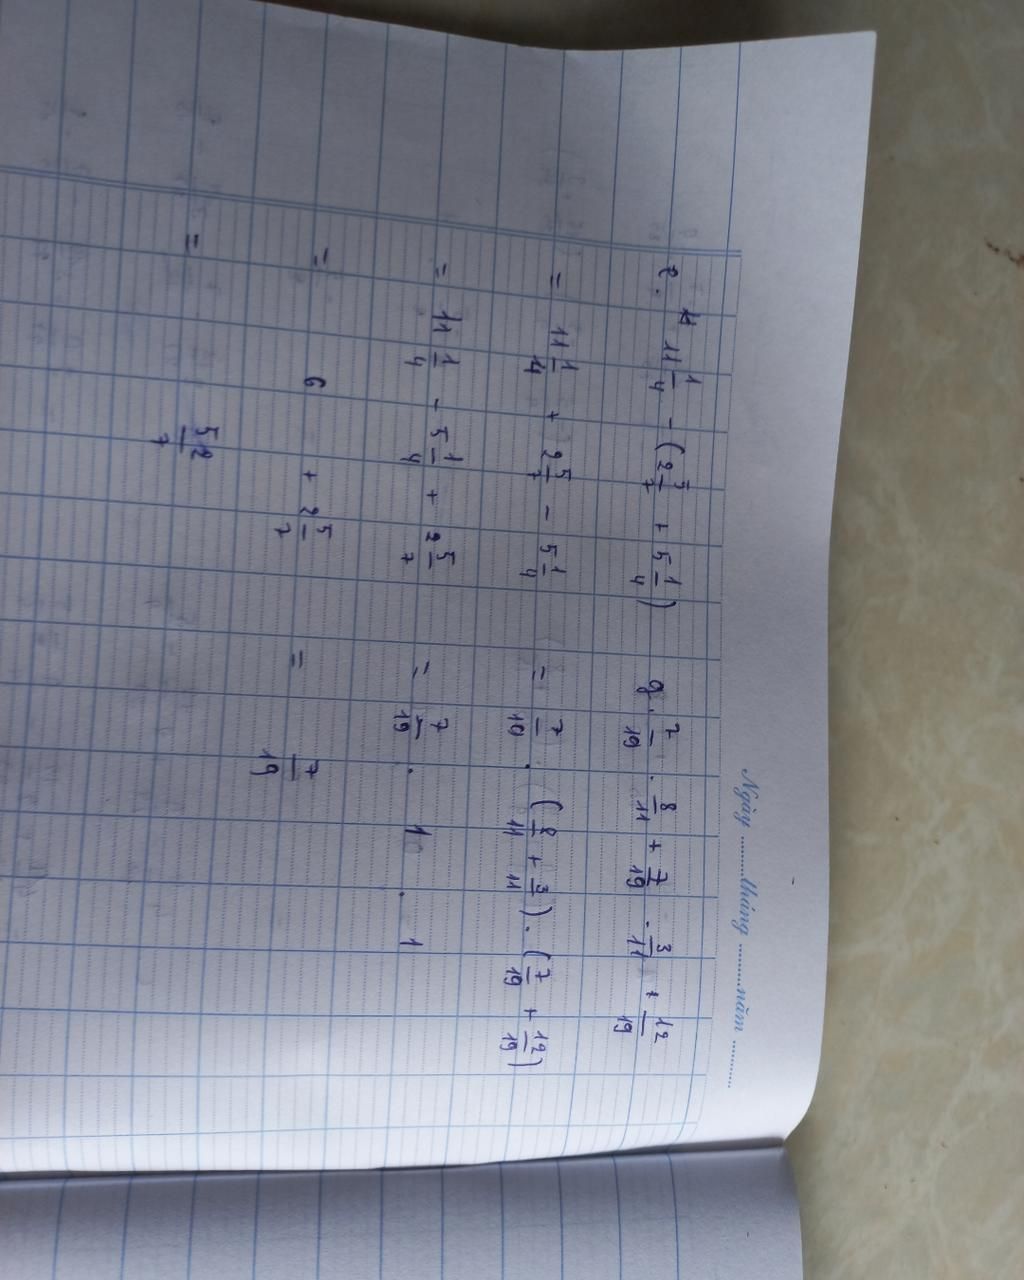 Ngày ......... tháng ......... năm .........
2. 11 1/4 - (2 5/7 + 5 1/4)
= 11 1/4 + 2 5/7 - 5 1/4
= 11 1/4 - 5 1/4 + 2 5/7
= 6 + 2 5/7
= 52/7
g. 7/19 . 8/11 + 7/19 . 3/11 + 12/19
= 7/10 . (8/11 + 3/11) . (7/19 + 12/19)
= 7/19 . 1 . 1
= 7/19